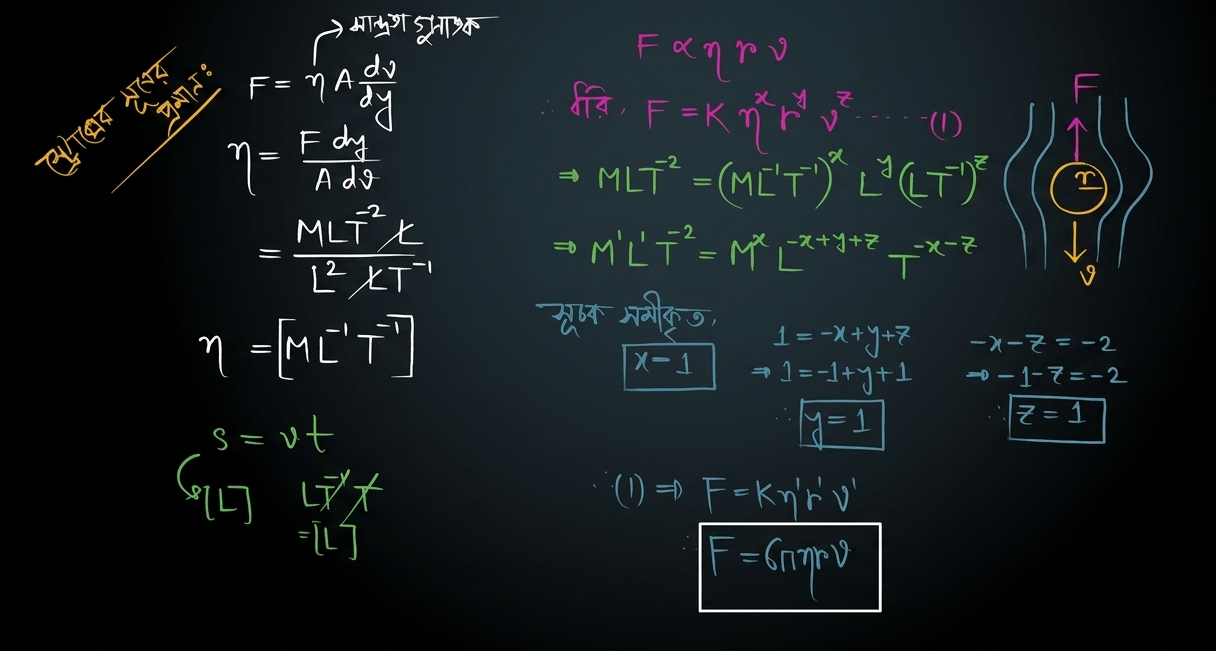 স্টোকসের সূত্রের
প্রমান:
সান্দ্রতা গুনাঙ্ক
F = η A dv/dy
η = F dy / A dv
= MLT⁻² L / L² LT⁻¹
η = [ML⁻¹T⁻¹]
s = vt
[L] LT⁻¹ T
= [L]
F ∝ η r v
∴ ধরি, F = K η^x r^y v^z ......(1)
⇒ MLT⁻² = (ML⁻¹T⁻¹)^x L^y (LT⁻¹)^z
⇒ M¹L¹T⁻² = M^x L^(-x+y+z) T^(-x-z)
সূচক সমীকৃত,
x = 1
1 = -x+y+z
⇒ 1 = -1+y+1
∴ y = 1
-x-z = -2
⇒ -1-z = -2
∴ z = 1
∴ (1) ⇒ F = Kη¹r¹v¹
∴ F = 6πηrv
F
r
v